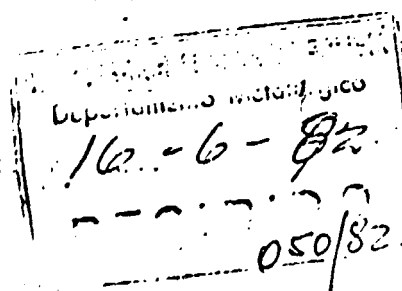 Departamento metalúrgico
16 - 6 - 82
050/82